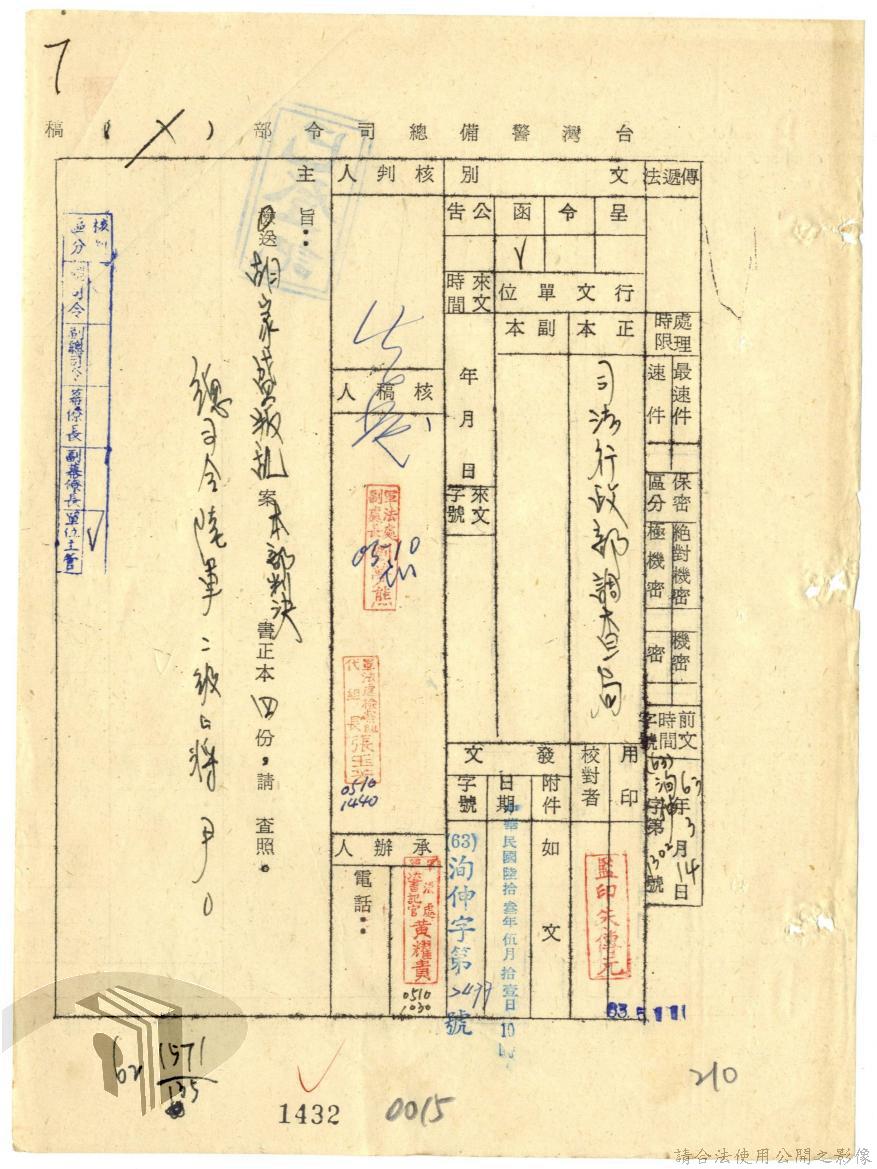 7
台灣警備總司令部（ ）稿
傳遞法
處理時限
最速件
速件
保密區分
絕對機密
極機密
機密
密
前文時間字號
63年3月14日
(63) 字第1302號
文別
呈
令
函
公告
行文單位
正本
副本
司法行政部調查局
來文時間
年月日
來文字號
用印
校對者
監印朱傳元
發文
附件
如文
日期
中華民國陸拾叁年伍月拾壹日10
字號
(63)洵伸字第2499號
63.5.11
核判人
核稿人
軍法處副處長
0510
軍法處檢察官代組長張玉
0510
1440
承辦人
軍法處軍法書記官黃耀貴
0510
1030
電話：
主旨：
送胡家叛亂案本部判決書正本四份，請查照。
總司令陸軍二級上將尹○
核判區分
總司令
副總司令
幕僚長
副幕僚長
單位主管
62
1571
135
1432
0015
210
請合法使用公開之影像